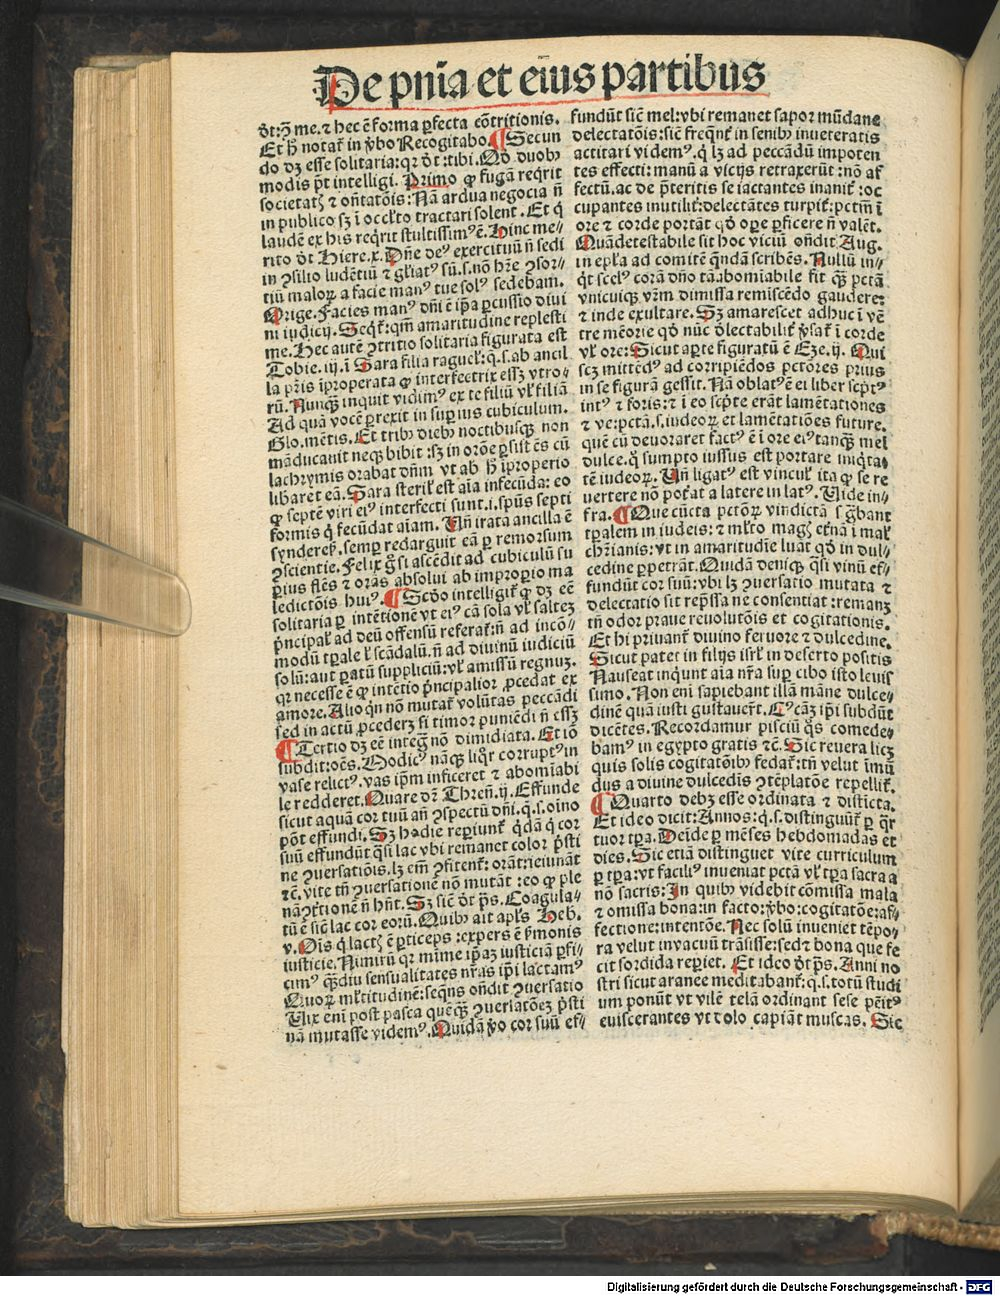 De pnīa et eiꝰ partibus
ðt:ꝫ me.⁊ hec ē forma ꝑfecta cōtritionis.
Et hͦ notat̄ in ꝟbo Recogitabo. ¶ Secun
do dꝫ esse solitaria: qꝛ ðt : tibi. Qð duobꝰ
modis pōt intelligi. Primo ꝙ fugā reqͥrit
societatꝭ ⁊ oñtatōis: Nā ardua negocia ñ
in publico sꝫ ī occl̓to tractari solent. Et qͥ
laudē ex his reqͥrit stultissimꝰ ē. Hinc me-
rito ðt Hiere.x. Dñe deꝰ exercituū ñ sedi
in ꝯsilio ludētiū ⁊ gl̓iatꝰ sū.s.nō hr̄e ꝯsor-
tiū maloꝝ a facie manꝰ tue solꝰ sedebam.
Orige. Facies manꝰ dñi ē ip̄a ꝑcussio diui
ni iudicij. Seqͥt̄: qm̄ amaritudine replesti
me. Hec autē ꝯtritio solitaria figurata est
Tobie.iij.ī Sara filia raguel̓: q̄.s.ab ancil
la pr̄is īproperata ꝙ interfectrix essꝫ vtro-
rū. Nunqͣꝫ inquit vidimꝰ ex te filiū vl̓ filiā
Ad quā vocē ꝑrexit in supius cubiculum.
Glo.mētis. Et tribꝰ diebꝰ noctibusqꝫ non
māducauit neqꝫ bibit : sꝫ in orōe ꝑsistēs cū
lachrymis orabat dñm vt ab hͦ īproperio
libaret eā. Sara steril̓ est aīa infecūda: eo
ꝙ septē viri eiꝰ interfecti sunt.i.spūs septi
formis qͥ fecūdat aīam. Vñ irata ancilla ē
synderesꝭ.semꝑ redarguit eā ꝑ remorsum
ꝯscientie. Felix gͦ si ascēdit ad cubiculū su
ꝑius flēs ⁊ orās absolui ab improperio ma
ledictōis huiꝰ. ¶ Scðo intelligit̄ ꝙ dꝫ eē
solitaria ꝑ intētionē vt eiꝰ cā sola vl̓ salteꝫ
pͥncipal̓ ad deū offensū referat̄: ñ ad incō-
modū tꝑale l̓ scādalū. ñ ad diuinū iudiciū
solū: aut ꝑatū suppliciū: vl̓ amissū regnuꝫ.
qꝛ necesse ē ꝙ intētio pͥncipalior ꝓcedat ex
amore. Alioqͥn nō mutat̄ volūtas peccādi
sed in actū ꝓcederꝫ si timor puniēdi ñ essꝫ
¶ Tertio dꝫ eē integͣ nō dimidiata. Et iō
subdit: oēs. Modicꝰ nāqꝫ liqͦr corruptꝰ in
vase relictꝰ.vas ip̄m inficeret ⁊ abomīabi
le redderet. Quare dꝛ Thren̄.ij. Effunde
sicut aquā cor tuū añ ꝯspectū dñi.q̄.s.oīno
pōt effundi. Sꝫ hodie reꝑiunt̄ qͥdā qͥ cor
suū effundūt qͣsi lac vbi remanet color pͥsti
ne ꝯuersatiōis.lꝫ em̄ ꝯfitent̄: orāt: ieiunāt
⁊c̄.vite tñ ꝯuersatione nō mutāt : eo ꝙ ple
nā ꝯtͥtionē ñ hñt. Sꝫ sic̄ ðt ps̄. Coagula-
tū ē sic̄ lac cor eorū. Quibꝰ ait apl̓s Heb.
v. Ois qͥ lactꝭ ē ꝑticeps : expers ē ẜmonis
iusticie. Nimirū qꝛ mīme ip̄aꝫ iusticiā ꝑfi-
cimꝰ qͣꝫdiu sensualitates nr̄as ip̄i lactamꝰ
Quoꝝ ml̓titudinē: seqn̄s on̄dit ꝯuersatio
Vix enī post pasca quēqͣꝫ ꝯuersatōeꝫ pͥsti
nā mutasse videmꝰ. Quidā ꝟo cor suū ef-
fundūt sic̄ mel: vbi remanet sapor mūdane
delectatōis: sic̄ freqn̄t̄ in senibꝰ inueteratis
actitari videmꝰ. qͥ lꝫ ad peccādū impoten
tes effecti: manū a vicijs retraxerūt : nō af
fectū. ac de pͥteritis se iactantes inanit̄ : oc
cupantes inutilit̄: delectātes turpit̄: pctm̄ ī
ore ⁊ corde portāt qð oꝑe ꝑficere ñ valēt.
Quā detestabile sit hoc viciū on̄dit Aug.
in ep̄la ad comitē qͥndā scribēs. Nullū in-
qͥt scelꝰ corā dño tā abomīabile fit qͣꝫ pctā
vnicuiqꝫ vr̄m dimissa remiscēdo gaudere:
⁊ inde exultare. Sꝫ amarescet adhuc ī vē
tre mēorie qð nūc ðlectabilit̄ ꝟsat̄ ī corde
vl̓ ore: Sicut aꝑte figuratū ē Eze.ij. Qui
scꝫ mittēdꝰ ad corripiēdos pctōres prius
in se figurā gessit. Nā oblatꝰ ē ei liber scptꝰ
intꝰ ⁊ foris: ⁊ ī eo scpte erāt lamētationes
⁊ ve: pctā.s.iudeoꝝ et lamētatiōes future.
quē cū deuoraret factꝰ ē ī ore eiꝰ tanqͣꝫ mel
dulce. qͦ sumpto iussus est portare iniqͥta-
tē iudeoꝝ. Vñ ligatꝰ est vincul̓ ita ꝙ se re
uertere nō poss̄at a latere in latꝰ. Vide in-
fra. ¶ Que cūcta pctōꝝ vindictā sigͣbant
tꝑalem in iudeis: ⁊ ml̓to magꝭ etn̄ā ī mal̓
chr̄ianis: vt in amaritudīe luāt qð in dul-
cedine ꝑpetrāt. Quidā deniqꝫ qͣsi vinū ef-
fundūt cor suū: vbi lꝫ ꝯuersatio mutata ⁊
delectatio sit rep̄ssa ne consentiat : remanꝫ
tñ odor praue reuolutōis et cogitationis.
Et hi priuant̄ diuino feruore ⁊ dulcedine.
Sicut patet in filijs isrl̓ in deserto positis
Nauseat inqͥunt aīa nr̄a sup cibo isto leuis
simo. Non enī sapiebant illā māne dulce-
dinē quā iusti gustauert̄. Cꝰ cāꝫ ip̄i subdūt
dicētes. Recordamur pisciū qͦs comede-
bamꝰ in egypto gratis ⁊c̄. Sic reuera licꝫ
quis solis cogitatōibꝰ fedat̄: tñ velut īmū
dus a diuine dulcedīs ꝯtēplatōe repellit̄.
¶ Quarto debꝫ esse ordinata ⁊ disticta.
Et ideo dicit: Annos: q̄.s.distinguūt̄ ꝑ qͣt
tuor tꝑa. Deīde ꝑ mēses hebdomadas et
dies. Sic etiā distinguet vite curriculum
ꝑ tꝑa: vt faciliꝰ inueniat pctā vl̓ tꝑa sacra a
nō sacris: In quibꝰ videbit cōmissa mala
⁊ omissa bona: in facto: ꝟbo: cogitatōe: af-
fectione: intentōe. Nec solū inueniet tēpo-
ra velut inuacuū trāsisse: sed ⁊ bona que fe
cit sordida reꝑiet. Et ideo ðt ps̄. Anni no
stri sicut aranee meditabant̄: q̄.s.totū studi
um ponūt vt vilē telā ordinant sese penitꝰ
euiscerantes vt dolo capiāt muscas. Sic
Digitalisierung gefördert durch die Deutsche Forschungsgemeinschaft - DFG